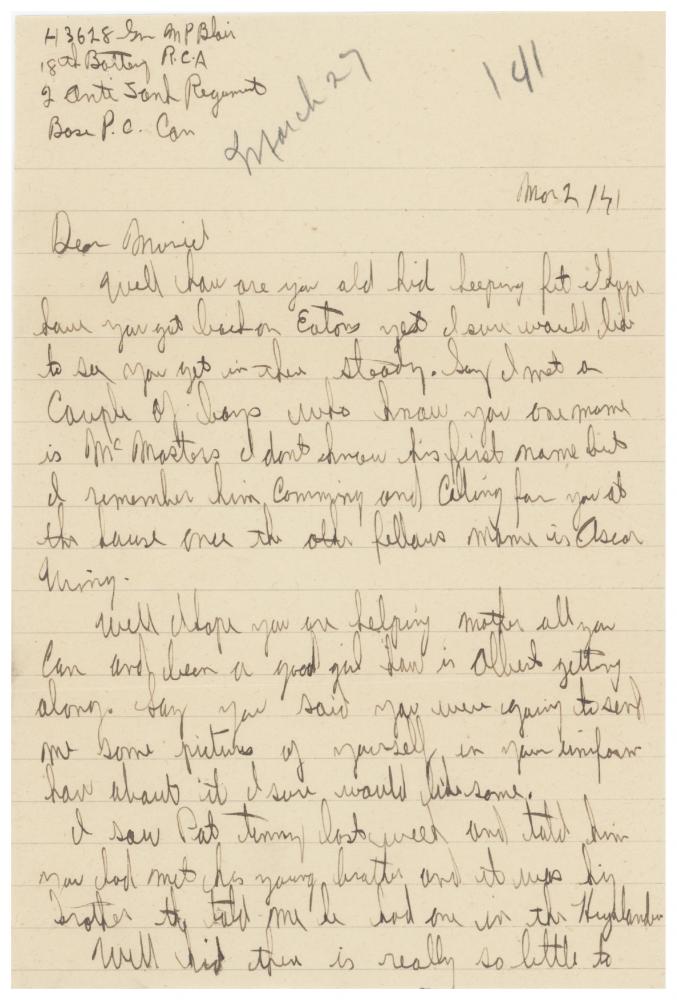 H3628 Gnr M P Blair
18th Battery R.C.A
2 Anti Tank Regiment
Base P.O. Can
March 27
141
Mar 2/41
Dear Muriel
Well how are you old kid keeping fit I hope
have you got back on Eatons yet I sure would like
to see you get in there steady. Say I met a
Couple of boys who know you one name
is McMasters I dont know his first name but
I remember him Comming and Calling for you at
the house once the other fellows name is Oscar

Well I hope you are helping mother all you
Can and been a good girl how is Albert getting
along. Say you said you were going to send
me some pictures of yourself in your uniform
how about it I sure would like some.
I saw Pat last week and told him
you had met his young brother and it was his
brother he told me he had one in the Highlanders
Well kid there is really so little to